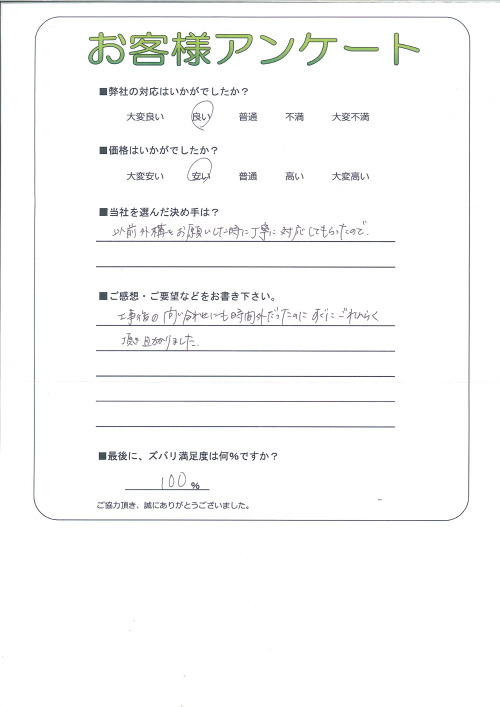 お客様アンケート
■弊社の対応はいかがでしたか？
大変良い 良い 普通 不満 大変不満
■価格はいかがでしたか？
大変安い 安い 普通 高い 大変高い
■当社を選んだ決め手は？
以前外構をお願いした時に丁寧に対応してもらったので.
■ご感想・ご要望などをお書き下さい。
工事後の問い合わせにも時間外だったのにすぐにご連らく
頂き助かりました.
■最後に、ズバリ満足度は何%ですか？
100 %
ご協力頂き、誠にありがとうございました。